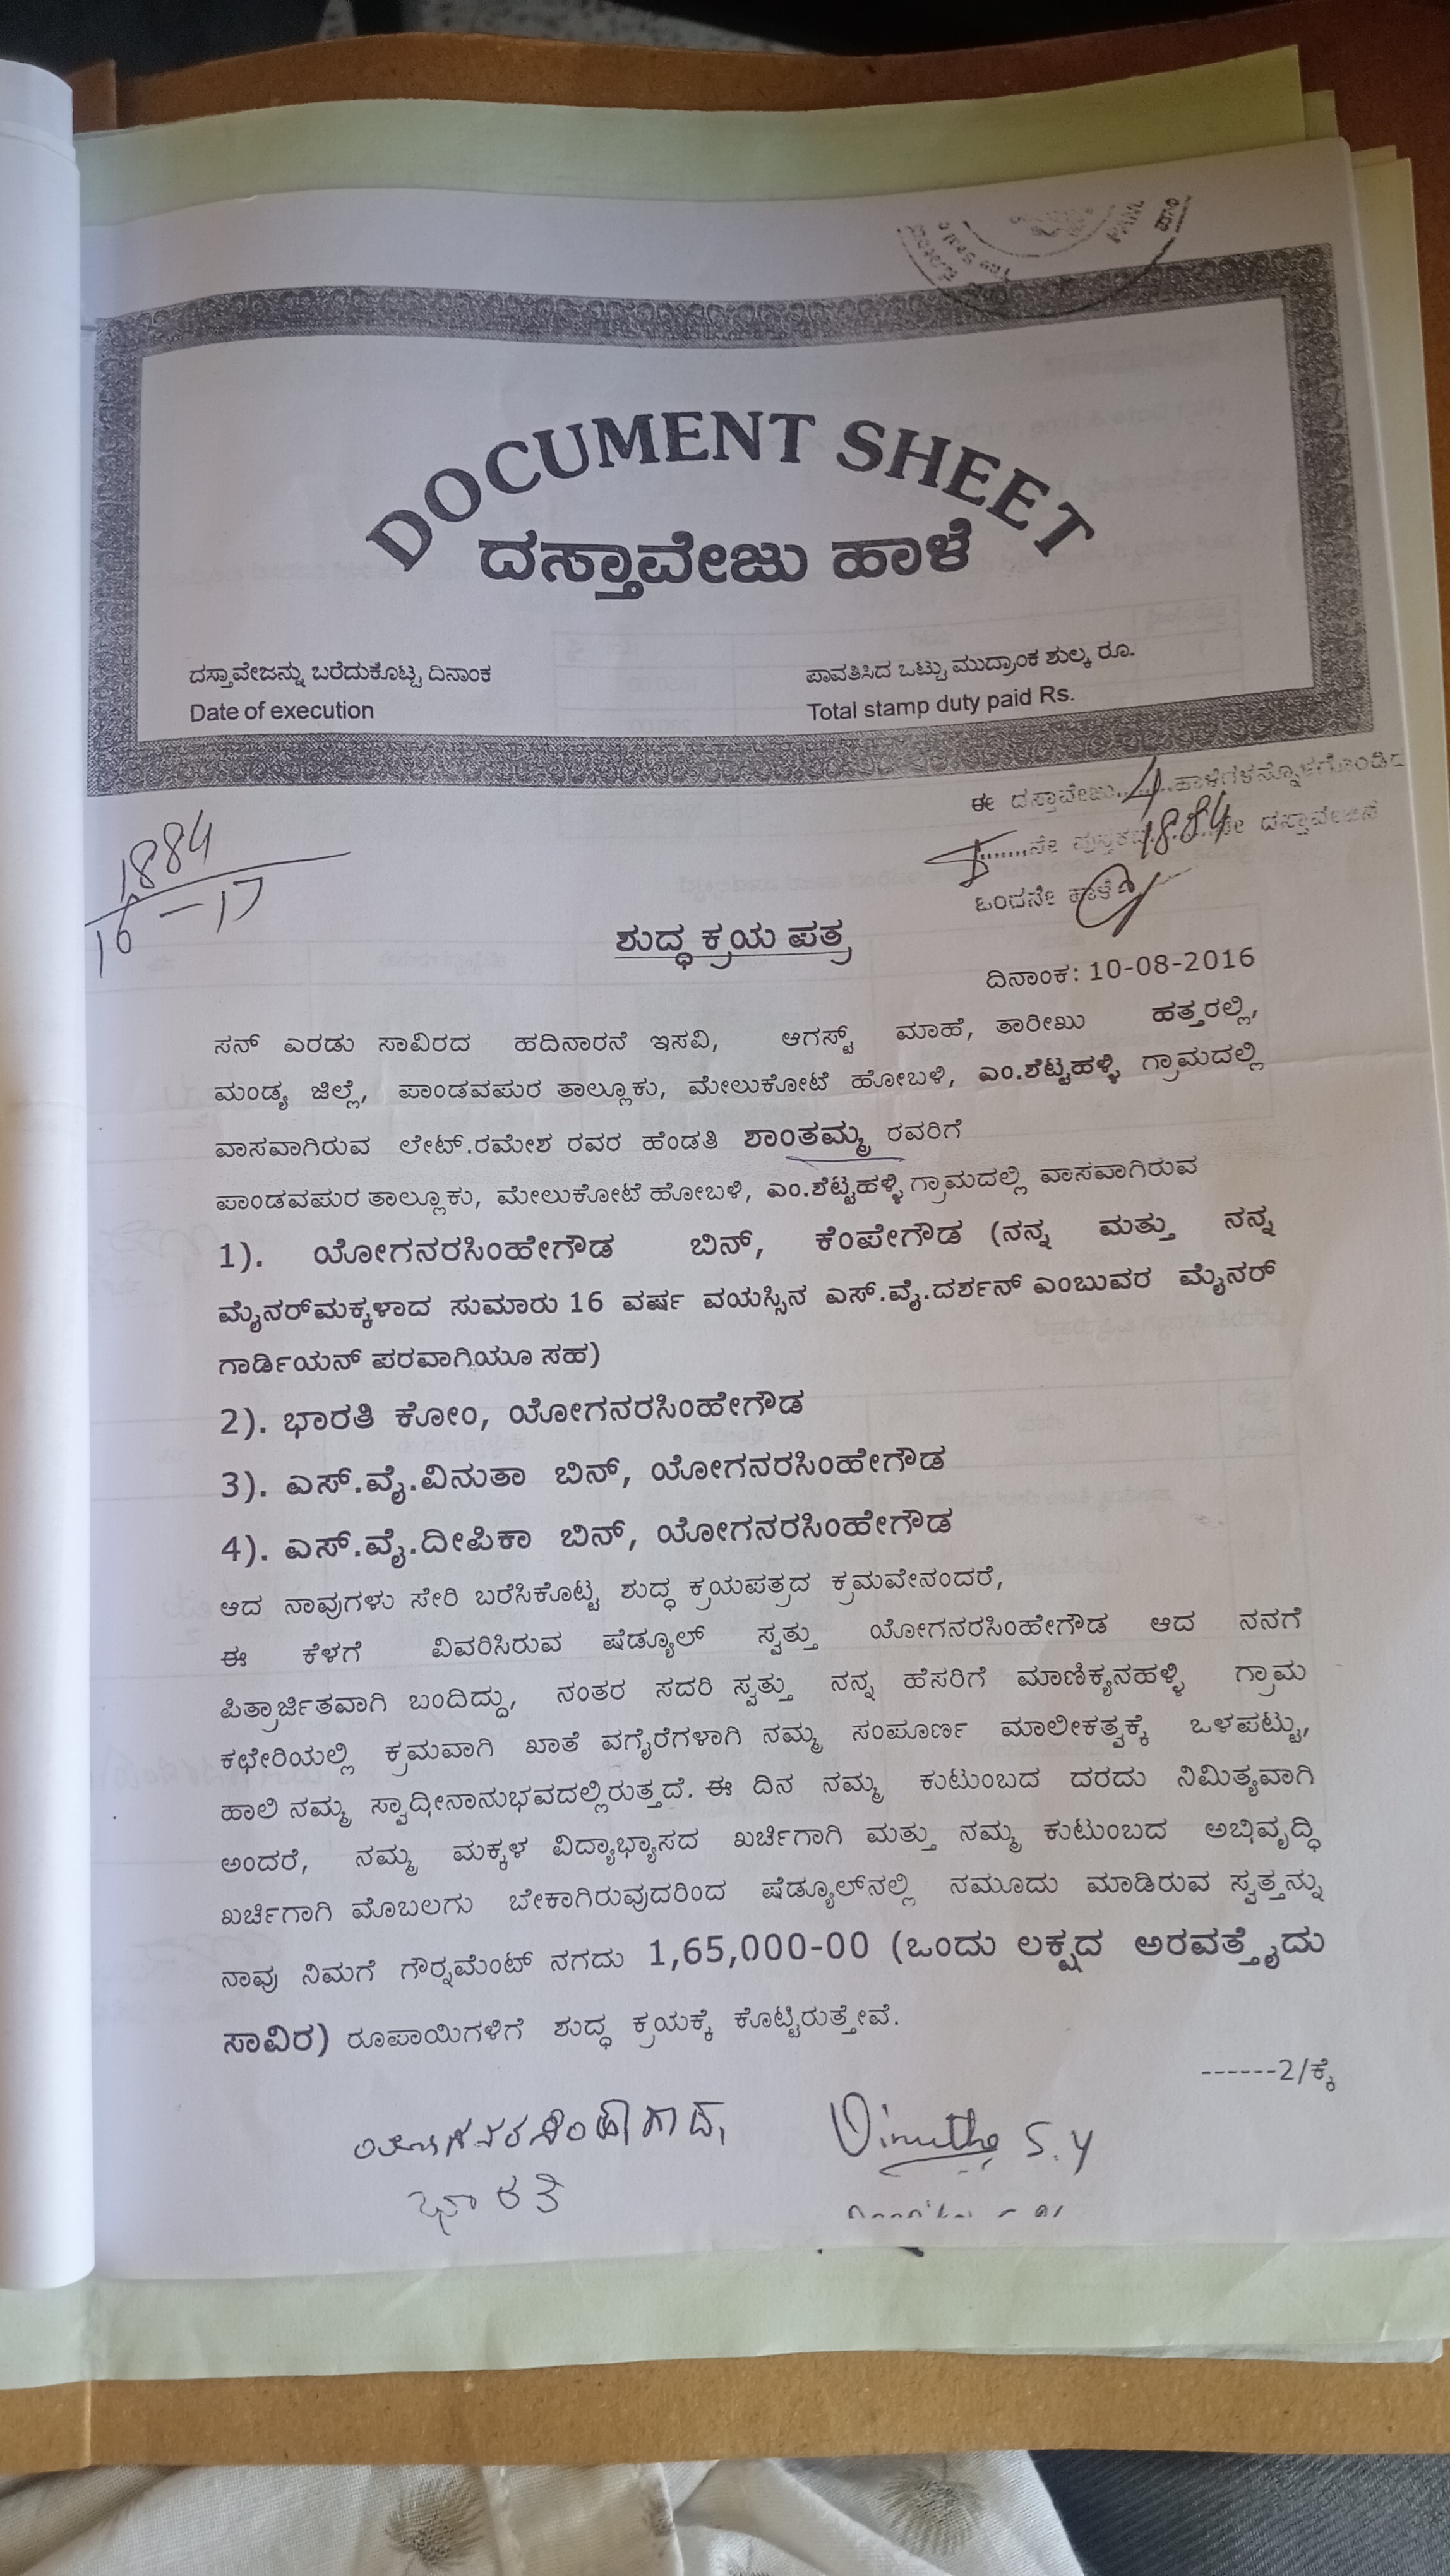 DOCUMENT SHEET
ದಸ್ತಾವೇಜು ಹಾಳೆ
ದಸ್ತಾವೇಜನ್ನು ಬರೆದುಕೊಟ್ಟ ದಿನಾಂಕ
Date of execution
ಪಾವತಿಸಿದ ಒಟ್ಟು ಮುದ್ರಾಂಕ ಶುಲ್ಕ ರೂ.
Total stamp duty paid Rs.
ಈ ದಸ್ತಾವೇಜು.....4.....ಹಾಳೆಗಳನ್ನೊಳಗೊಂಡಿದೆ
I.......ನೇ ಪುಸ್ತಕದ 1884ನೇ ದಸ್ತಾವೇಜಿನ
ಒಂದನೇ ಹಾಳೆ
1884
16-17
ಶುದ್ಧ ಕ್ರಯ ಪತ್ರ
ದಿನಾಂಕ: 10-08-2016
ಸನ್ ಎರಡು ಸಾವಿರದ ಹದಿನಾರನೆ ಇಸವಿ, ಆಗಸ್ಟ್ ಮಾಹೆ, ತಾರೀಖು ಹತ್ತರಲ್ಲಿ,
ಮಂಡ್ಯ ಜಿಲ್ಲೆ, ಪಾಂಡವಪುರ ತಾಲ್ಲೂಕು, ಮೇಲುಕೋಟೆ ಹೋಬಳಿ, ಎಂ.ಶೆಟ್ಟಹಳ್ಳಿ ಗ್ರಾಮದಲ್ಲಿ
ವಾಸವಾಗಿರುವ ಲೇಟ್.ರಮೇಶ ರವರ ಹೆಂಡತಿ ಶಾಂತಮ್ಮ ರವರಿಗೆ
ಪಾಂಡವಪುರ ತಾಲ್ಲೂಕು, ಮೇಲುಕೋಟೆ ಹೋಬಳಿ, ಎಂ.ಶೆಟ್ಟಹಳ್ಳಿ ಗ್ರಾಮದಲ್ಲಿ ವಾಸವಾಗಿರುವ
1). ಯೋಗನರಸಿಂಹೇಗೌಡ ಬಿನ್, ಕೆಂಪೇಗೌಡ (ನನ್ನ ಮತ್ತು ನನ್ನ
ಮೈನರ್‌ಮಕ್ಕಳಾದ ಸುಮಾರು 16 ವರ್ಷ ವಯಸ್ಸಿನ ಎಸ್.ವೈ.ದರ್ಶನ್ ಎಂಬುವರ ಮೈನರ್
ಗಾರ್ಡಿಯನ್ ಪರವಾಗಿಯೂ ಸಹ)
2). ಭಾರತಿ ಕೋಂ, ಯೋಗನರಸಿಂಹೇಗೌಡ
3). ಎಸ್.ವೈ.ವಿನುತಾ ಬಿನ್, ಯೋಗನರಸಿಂಹೇಗೌಡ
4). ಎಸ್.ವೈ.ದೀಪಿಕಾ ಬಿನ್, ಯೋಗನರಸಿಂಹೇಗೌಡ
ಆದ ನಾವುಗಳು ಸೇರಿ ಬರೆಸಿಕೊಟ್ಟ ಶುದ್ಧ ಕ್ರಯಪತ್ರದ ಕ್ರಮವೇನಂದರೆ,
ಈ ಕೆಳಗೆ ವಿವರಿಸಿರುವ ಷೆಡ್ಯೂಲ್ ಸ್ವತ್ತು ಯೋಗನರಸಿಂಹೇಗೌಡ ಆದ ನನಗೆ
ಪಿತ್ರಾರ್ಜಿತವಾಗಿ ಬಂದಿದ್ದು, ನಂತರ ಸದರಿ ಸ್ವತ್ತು ನನ್ನ ಹೆಸರಿಗೆ ಮಾಣಿಕ್ಯನಹಳ್ಳಿ ಗ್ರಾಮ
ಕಛೇರಿಯಲ್ಲಿ ಕ್ರಮವಾಗಿ ಖಾತೆ ವಗೈರೆಗಳಾಗಿ ನಮ್ಮ ಸಂಪೂರ್ಣ ಮಾಲೀಕತ್ವಕ್ಕೆ ಒಳಪಟ್ಟು,
ಹಾಲಿ ನಮ್ಮ ಸ್ವಾಧೀನಾನುಭವದಲ್ಲಿರುತ್ತದೆ. ಈ ದಿನ ನಮ್ಮ ಕುಟುಂಬದ ದರದು ನಿಮಿತ್ಯವಾಗಿ
ಅಂದರೆ, ನಮ್ಮ ಮಕ್ಕಳ ವಿದ್ಯಾಭ್ಯಾಸದ ಖರ್ಚಿಗಾಗಿ ಮತ್ತು ನಮ್ಮ ಕುಟುಂಬದ ಅಭಿವೃದ್ಧಿ
ಖರ್ಚಿಗಾಗಿ ಮೊಬಲಗು ಬೇಕಾಗಿರುವುದರಿಂದ ಷೆಡ್ಯೂಲ್‌ನಲ್ಲಿ ನಮೂದು ಮಾಡಿರುವ ಸ್ವತ್ತನ್ನು
ನಾವು ನಿಮಗೆ ಗೌರ್‍ನಮೆಂಟ್ ನಗದು 1,65,000-00 (ಒಂದು ಲಕ್ಷದ ಅರವತ್ತೈದು
ಸಾವಿರ) ರೂಪಾಯಿಗಳಿಗೆ ಶುದ್ಧ ಕ್ರಯಕ್ಕೆ ಕೊಟ್ಟಿರುತ್ತೇವೆ.
------2/ಕ್ಕೆ
Vinutha S.Y
ಭಾರತಿ